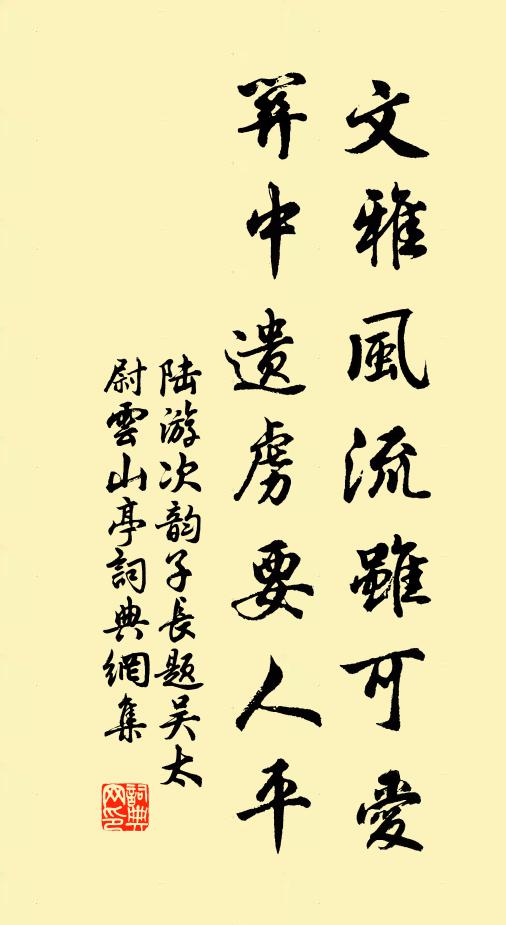 文雅風流雖可愛
關中遺虜要人平
陆游次韵子長题吴太
尉雲山亭詞典網集
詞典
网印